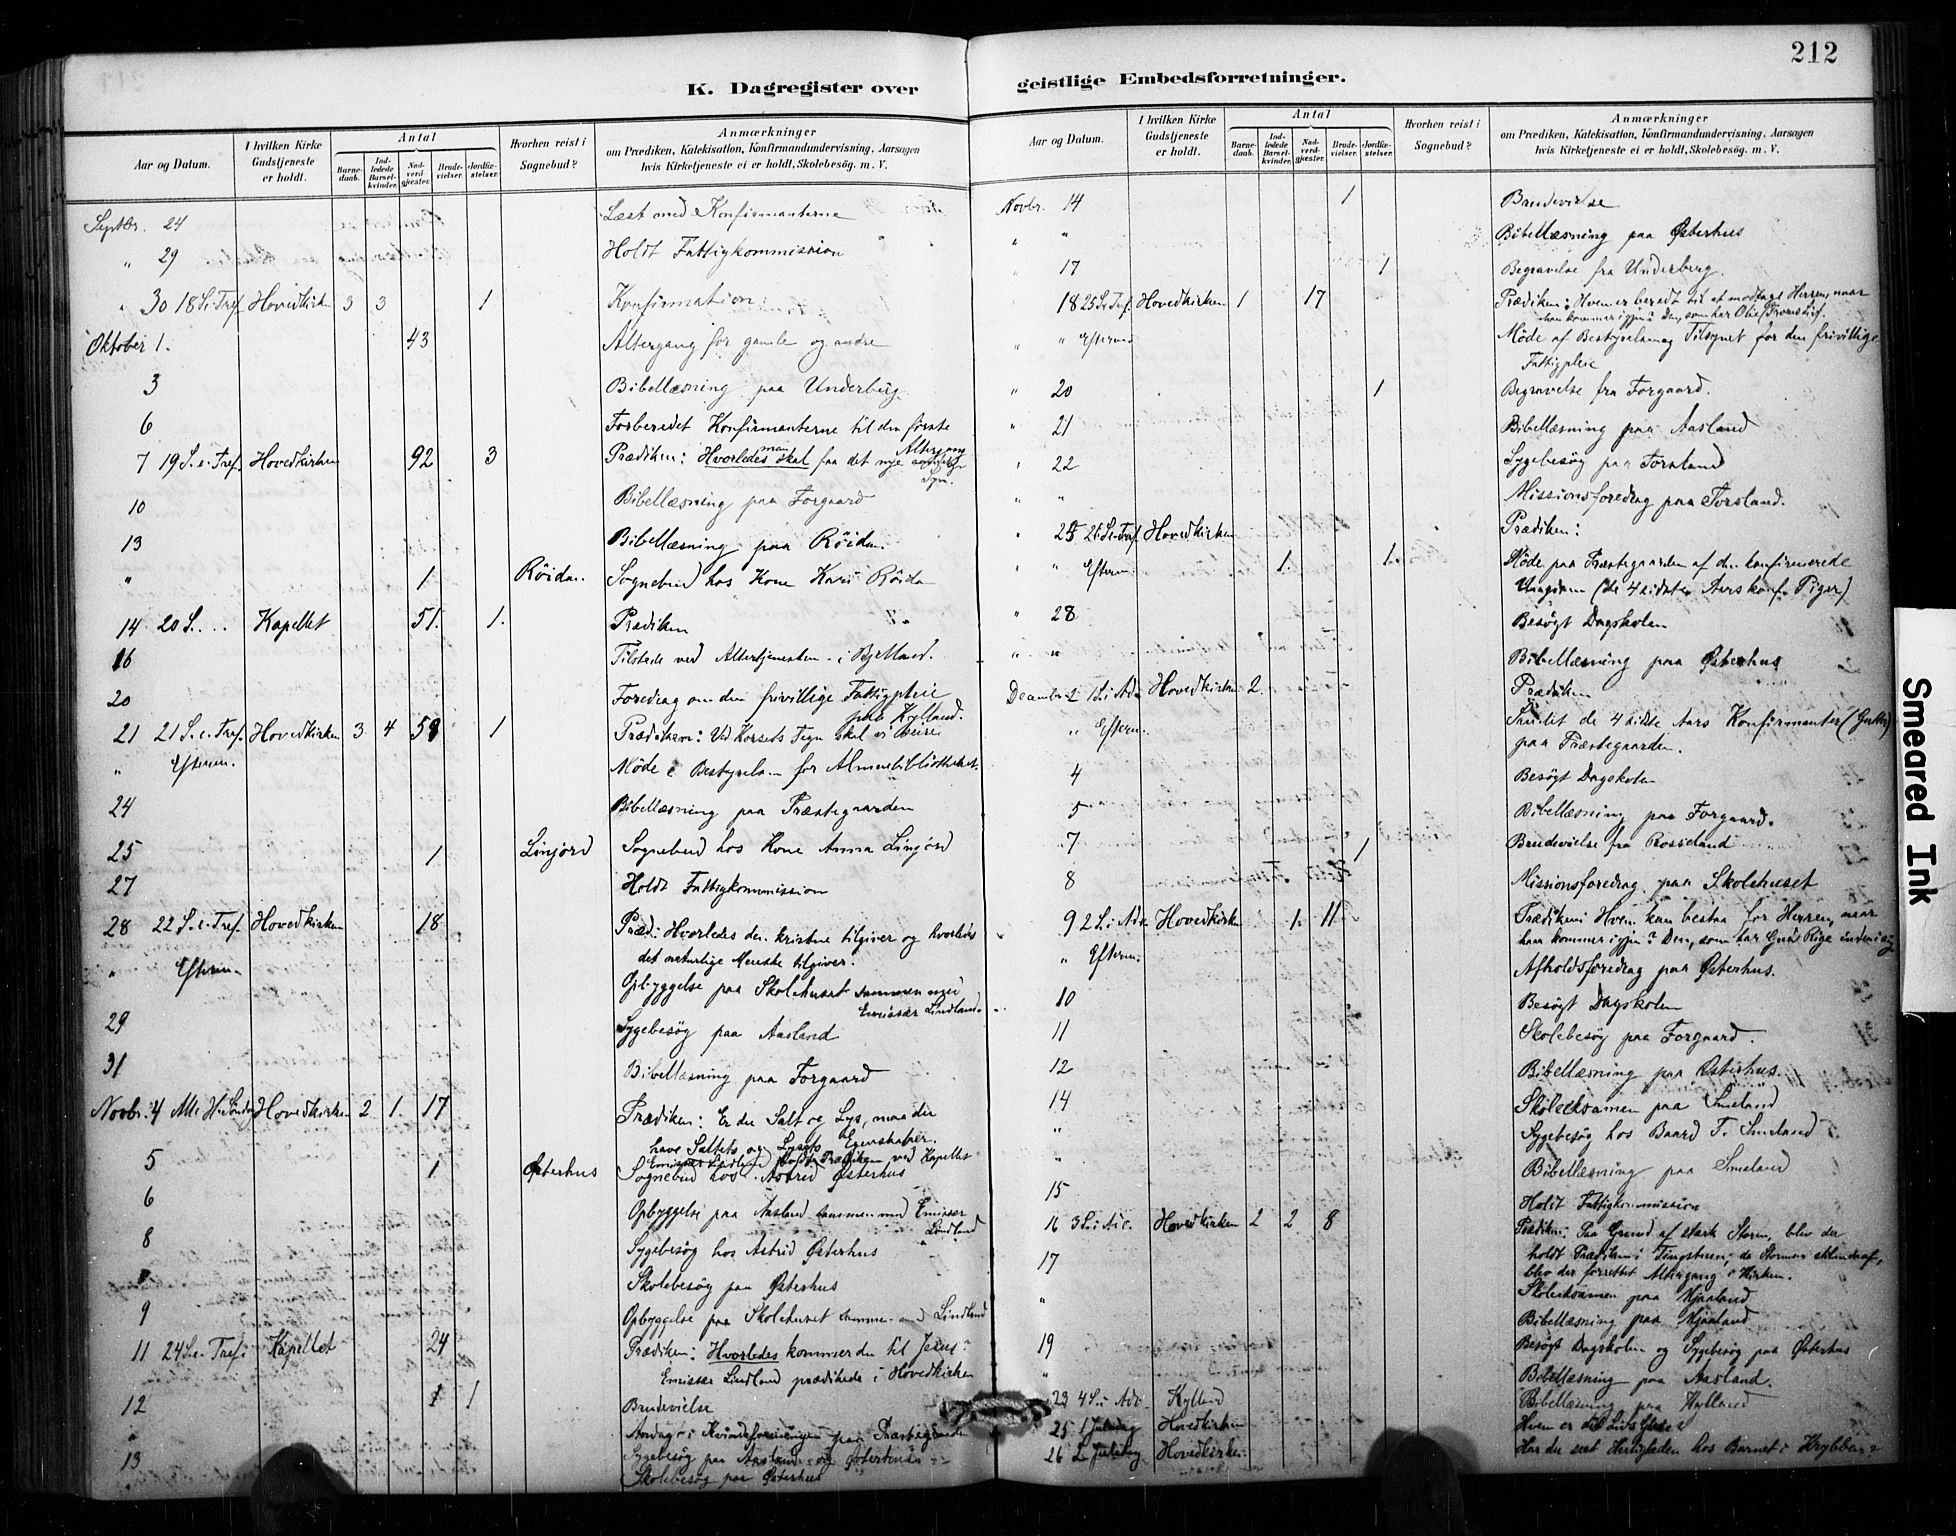 212
K. Dagregister over geistlige Embedsforretninger.
Aar og Datum. I hvilken Kirke Gudstjeneste er holdt. Antal Barnedaab. Indledede Barselkvinder. Nadverdgjester. Brudevielser. Jordfæstelser. Hvorhen reist i Sognebud? Anmærkninger om Prædiken, Katekisation, Konfirmandundervisning, Aarsagen hvis Kirketjeneste ei er holdt, Skolebesøg. m. V.
Septbr. 24 Læst med Konfirmanterne
" 29 Holdt Fattigkommission
" 30 18 S. e. Tref. Hovedkirken 3 3 1 Konfirmation.
Oktober 1. 43 Altergang for gamle og andre
3 Bibellæsning paa Underberg
6 Forberedet Konfirmanterne til den første Altergang
7 19 S. e. Tref. Hovedkirken 92 3 Prædiken: Hvorledes man skal faa det nye Syn.
10 Bibellæsning paa Forgaard
13 Bibellæsning paa Röidan.
" 1 Röidan. Sognebud hos Kone Kari Röidan
14 20 S. ... Kapellet 51. 1. Prædiken
16 Tilstede ved Altertjenesten i Bjelland.
20 Foredrag om den frivillige Fattigpleie paa Kylland.
21 21 S. e. Tref. Hovedkirken 3 4 59 1 Prædiken: Ved Korsets Tegn skal vi seire
" Efterm. Møde i Bestyrelsen for Almuebibliotheket.
24 Bibellæsning paa Præstegaarden
25 1 Linjord Sognebud hos Kone Anna Linjord
27 Holdt Fattigkommission
28 22 S. e. Tref. Hovedkirken 18 Præd: Hvorledes den kristne tilgiver og hvorledes
det naturlige Menske tilgiver.
" Efterm Opbyggelse paa Skolehuset sammen med
Emissær Lindland.
29 Sygebesøg paa Aasland
31 Bibellæsning paa Forgaard
Novbr. 4 Alle H. Søndag Hovedkirken 2 1. 17 Prædiken: Er du Salt og Lys, maa du
have Saltets og Lysets Egenskaber.
Emissær Lindland holdt Prædiken ved Kapellet
5 1 Østerhus Sognebud hos Astrid Østerhus
6 Opbyggelse paa Aasland sammen med Emissær
Lindland
8 Sygebesøg hos Astrid Østerhus
" Skolebesøg paa Østerhus
9 Opbyggelse paa Skolehuset sammen med Lindland
11 24 S. e. Tref. Kapellet 24 Prædiken: Hvorledes kommer du til Jesus?
Emissær Lindland prædikede i Hovedkirken
12 1 1 Brudevielse
" Andagt i Kvindeforeningen paa Præstegaarden
13 Sygebesøg paa Aasland og Østerhus
" Skolebesøg paa Østerhus
Aar og Datum. I hvilken Kirke Gudstjeneste er holdt. Antal Barnedaab. Indledede Barselkvinder. Nadverdgjester. Brudevielser. Jordfæstelser. Hvorhen reist i Sognebud? Anmærkninger om Prædiken, Katekisation, Konfirmandundervisning, Aarsagen hvis Kirketjeneste ei er holdt, Skolebesøg. m. V.
Novbr. 14 1 Brudevielse
" " Bibellæsning paa Østerhus
" 17 1 Begravelse fra Underberg.
18 25 S. e. Tref. Hovedkirken 1 17 Prædiken: Hvem er beredt til at modtage Herren, naar
han kommer igjen? Den, som har Olie
" " Efterm Møde af Bestyrelsen og Tilsynet for den frivillige
Fattigpleie
" 20 1 Begravelse fra Forgaard.
" 21 Bibellæsning paa Aasland
" 22 Sygebesøg paa Forsland
" " Missionsforedrag paa Forsland.
" 25 26 S. e. Tref. Hovedkirken Prædiken:
" " Efterm 1. 1. Møde paa Præstegaarden af den konfirmerede
Ungdom (de 4 sidste Aars konf. Piger)
" 28 Besøgt Dagskolen
" " Bibellæsning paa Østerhus
Decembr. 2 1 S. i Adv. Hovedkirken 2. Prædiken
" Efterm. Samlet de 4 sidste Aars Konfirmanter (Gutter)
paa Præstegaarden.
4 Besøgt Dagskolen
5 Bibellæsning paa Forgaard.
7 1 Brudevielse fra Rosseland
8 Missionsforedrag paa Skolehuset
9 2 S. i Adv. Hovedkirken 1. 11 Prædiken: Hvem kan bestaa for Herren, naar
han kommer igjen? Den, som har Guds Rige inden i sig
" Efterm. Afholdsforedrag paa Østerhus.
10 Besøgt Dagskolen
11 Skolebesøg paa Forgaard.
12 Bibellæsning paa Østerhus.
14 Skoleeksamen paa Smeland
" Sygebesøg hos Baard T. Smeland
" Bibellæsning paa Smeland
15 Holdt Fattigkommission
16 3 S. i Adv. Hovedkirken 2 2 8 Prædiken: Paa Grund af stærk Storm, blev der
holdt Prædiken i Tingstuen; da Stormen stilnede af,
blev der forrettet Altergang i Kirken.
17 Skoleeksamen paa Hjaaland
" Bibellæsning paa Hjaaland
19 Besøgt Dagskolen og Sygebesøg paa Østerhus
" Bibellæsning paa Aasland.
23 4 S. i Adv. Kylland Bibellæsning paa Kylland
25 1 Juledag Hovedkirken Hvem er
26 2 Juledag Hovedkirken. Har du seet Herligheden hos Barnet i Krybben?
Smeared Ink